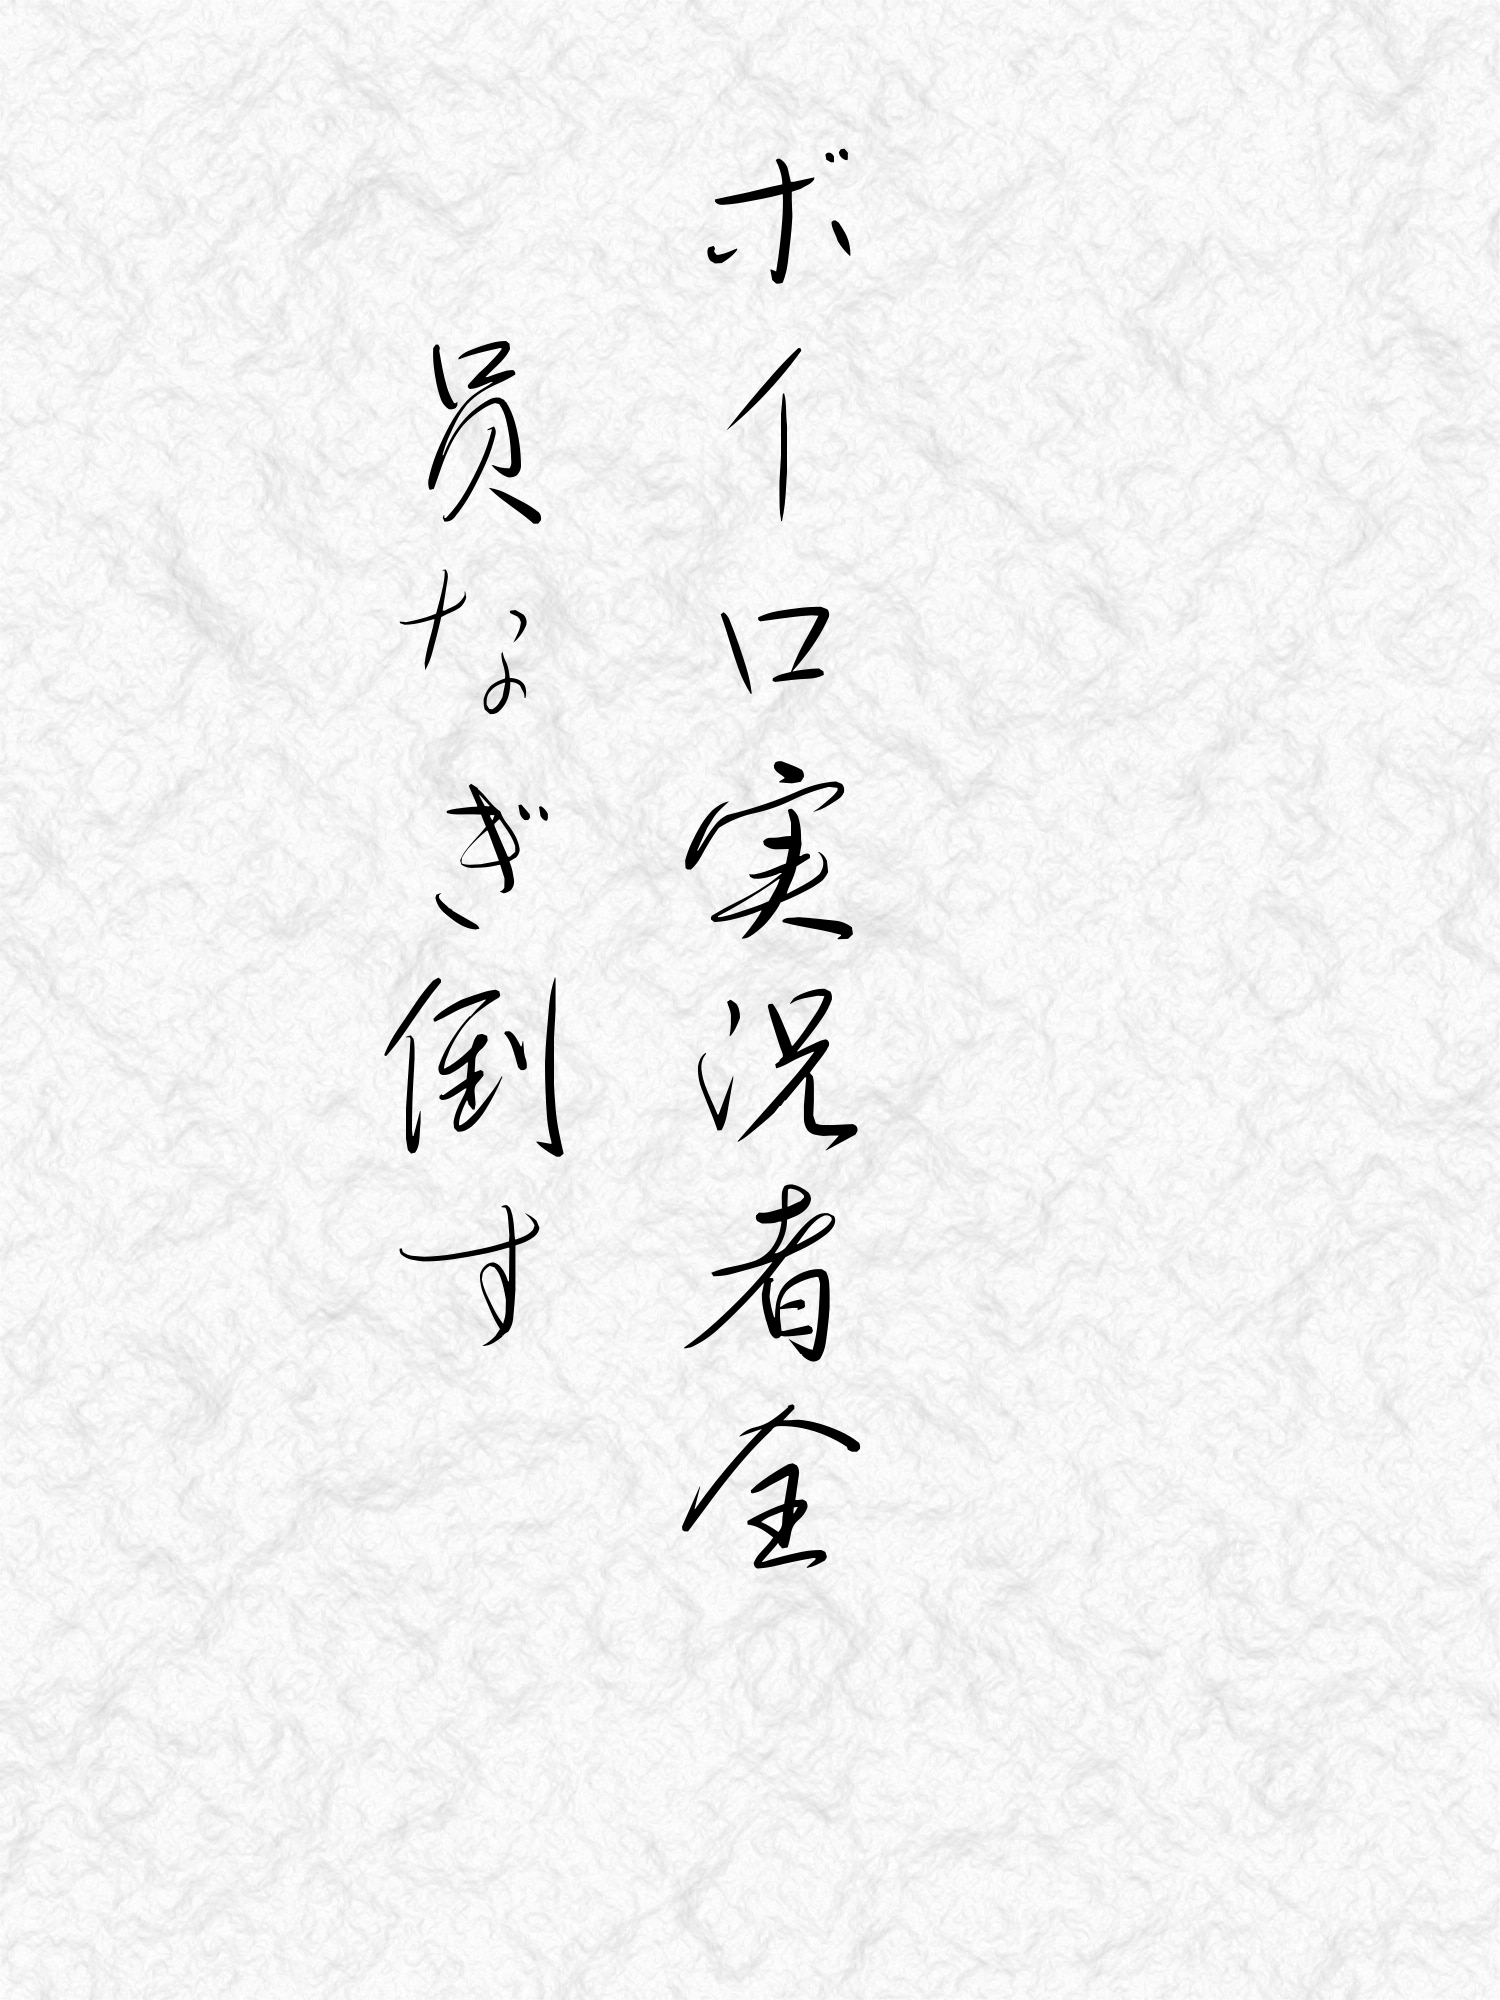 ボイロ実況者全
員なぎ倒す